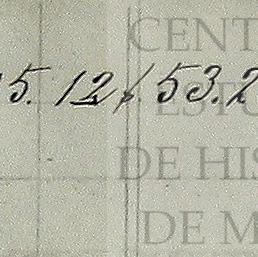 5.12 53.2
CENT
ESTU
DE HIS
DE M